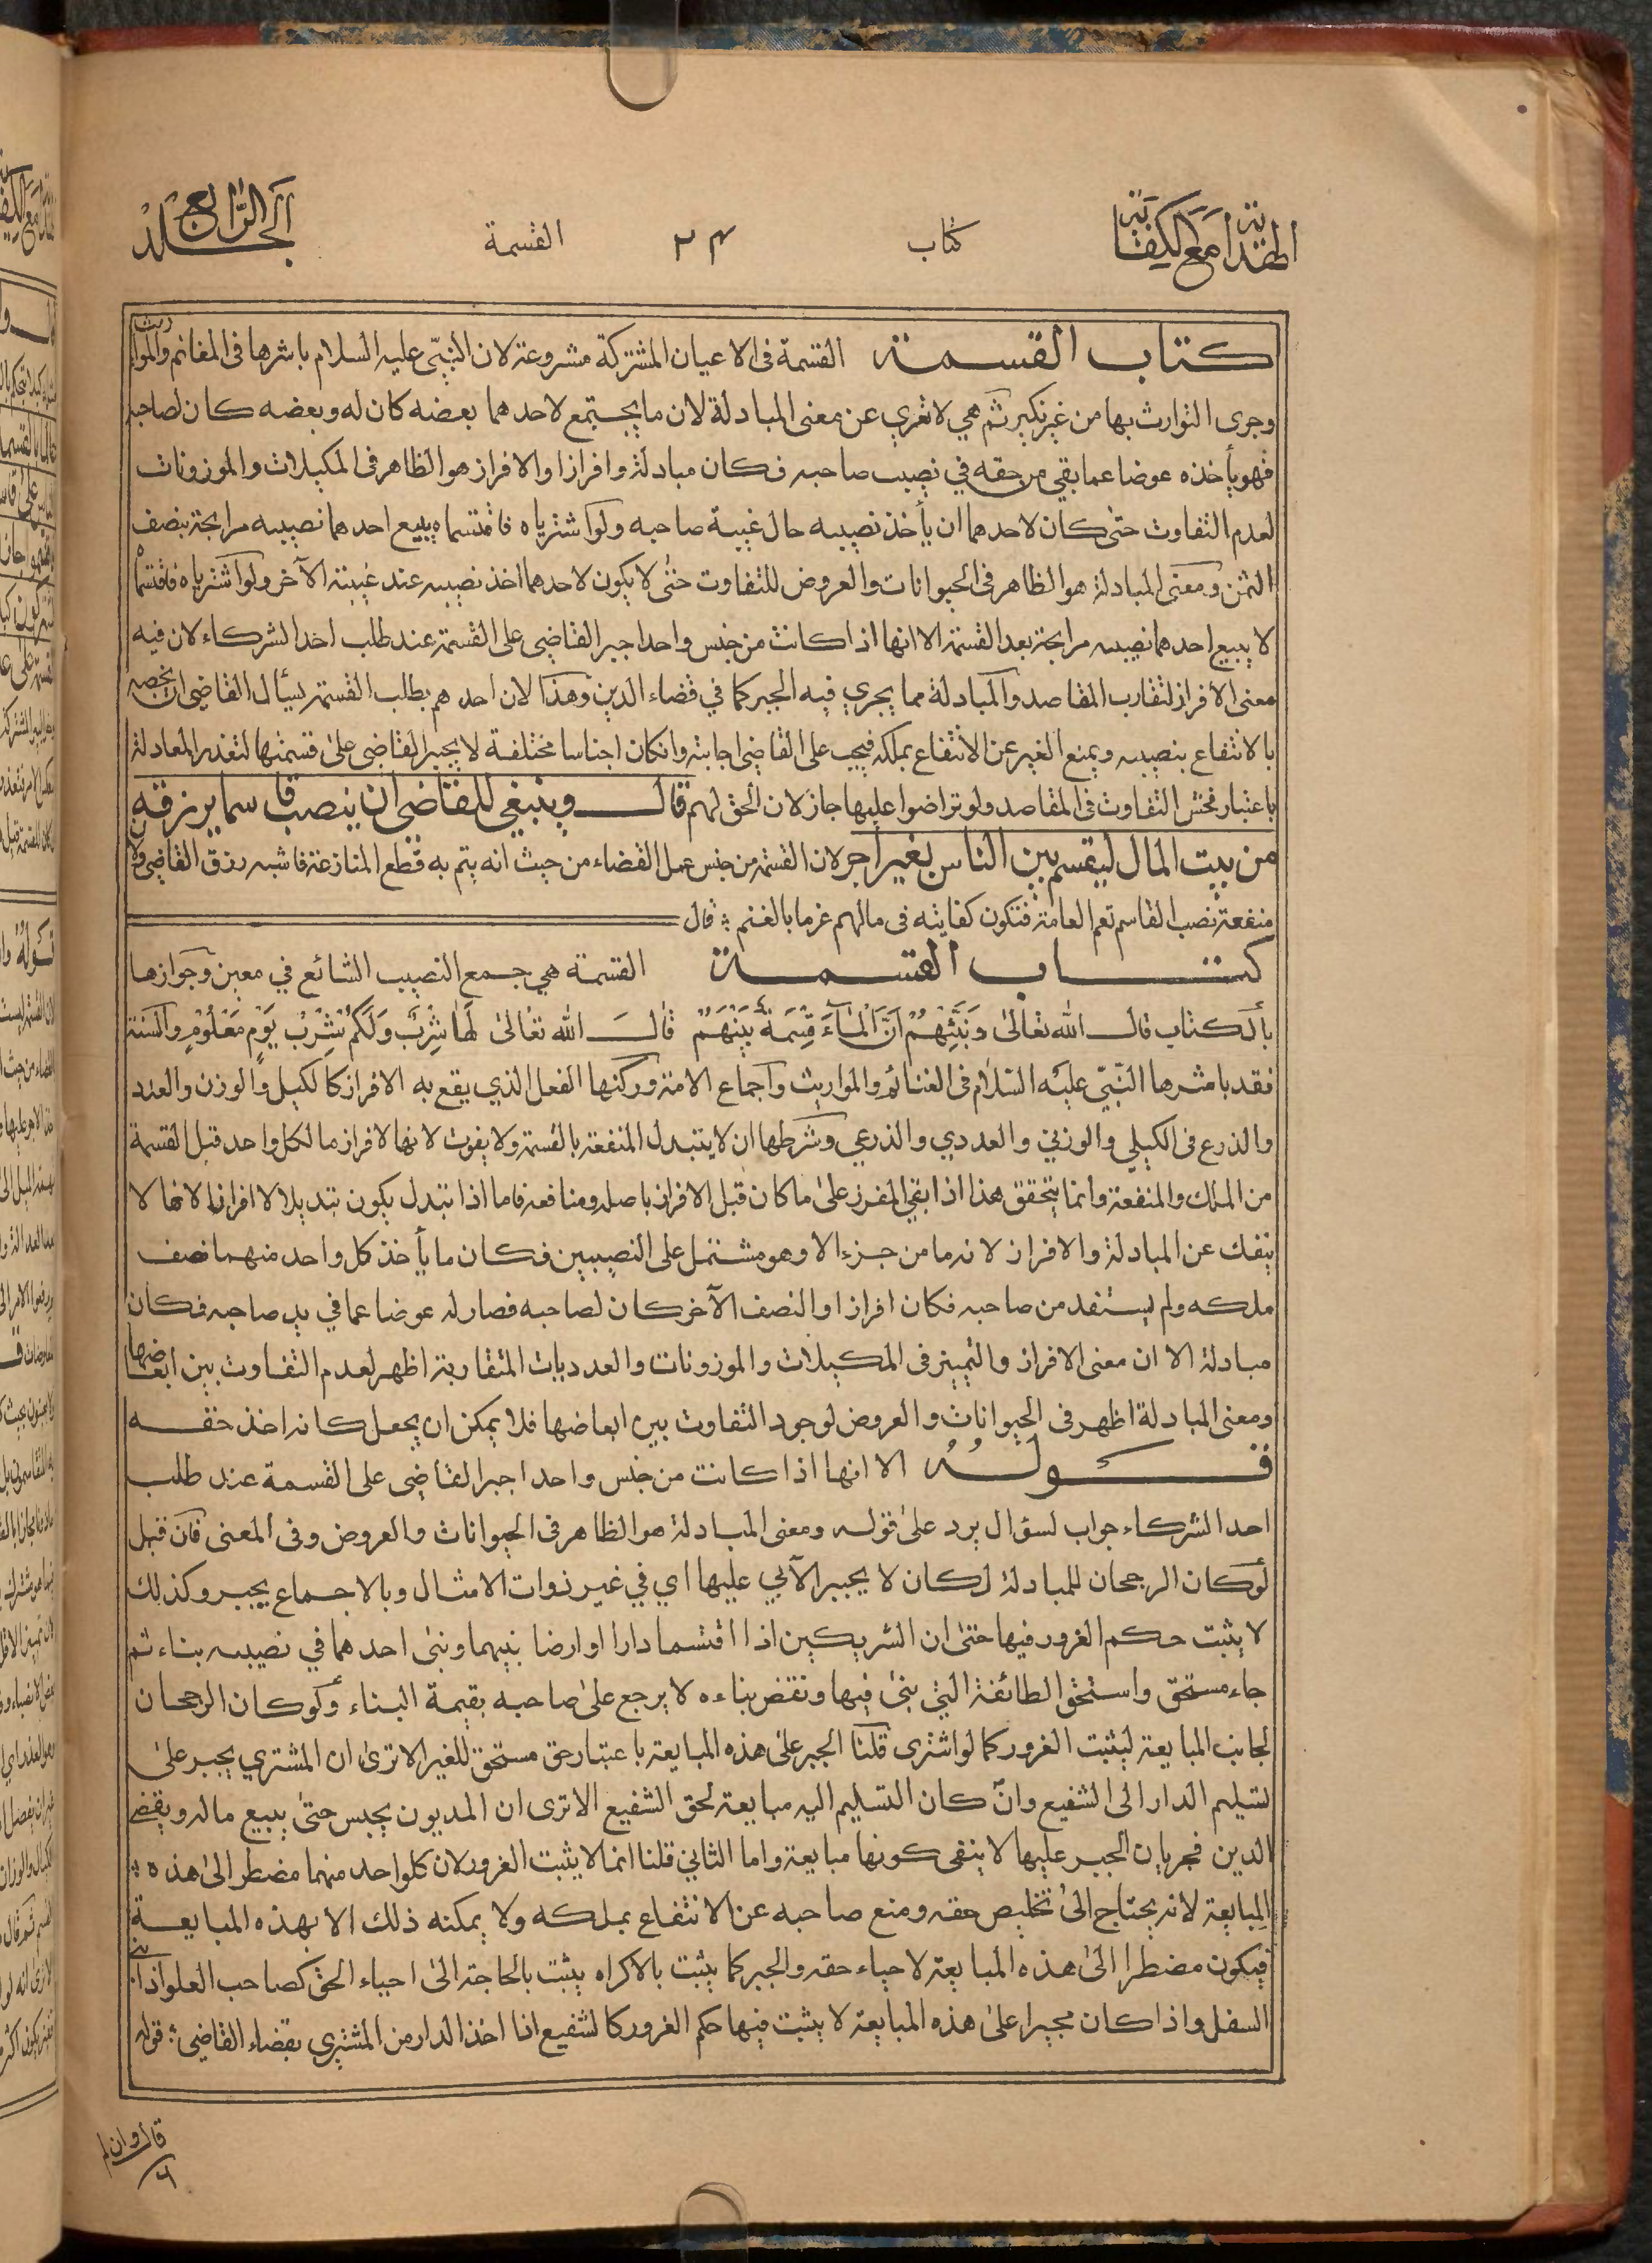 الهداية مع الكفاية
كتاب
٢٤
القسمة
الجلد الرابع
كتاب القسمة القسمة فى الاعيان المشتركة مشروعة لان النبيّ عليه السلام باشرها فى المغانم والمواريث
وجرى التوارث بها من غير نكير ثم هي لا تعرى عن معنى المبادلة لان ما يجتمع لاحدهما بعضه كان له وبعضه كان لصاحبه
فهو يأخذه عوضا عما بقي من حقه في نصيب صاحبه فكان مبادلة وافرازا والافراز هو الظاهر فى المكيلات والموزونات
لعدم التفاوت حتى كان لاحدهما ان يأخذ نصيبه حال غيبة صاحبه ولو اشترياه فاقتسماه يبيع احدهما نصيبه مرابحة بنصف
الثمن ومعنى المبادلة هو الظاهر فى الحيوانات والعروض للتفاوت حتى لا يكون لاحدهما اخذ نصيبه عند غيبة الآخر ولو اشترياه فاقتسماه
لا يبيع احدهما نصيبه مرابحة بعد القسمة الا انها اذا كانت من جنس واحد اجبر القاضي على القسمة عند طلب احد الشركاء لان فيه
معنى الافراز لتقارب المقاصد والمبادلة مما يجري فيه الجبر كما في قضاء الدين وهذا لان احدهم بطلب القسمة يسأل القاضي ان يخصه
بالانتفاع بنصيبه ويمنع الغير عن الانتفاع بملكه فيجب على القاضي اجابته وانكان اجناسا مختلفة لا يجبر القاضي على قسمتها لتعذر المعادلة
باعتبار فحش التفاوت فى المقاصد ولو تراضوا عليها جاز لان الحق لهم قال وينبغي للقاضي ان ينصب قاسما يرزقه
من بيت المال ليقسم بين الناس بغير اجر لان القسمة من جنس عمل القضاء من حيث انه يتم به قطع المنازعة فاشبه رزق القاضي ولان
منفعة نصب القاسم تعم العامة فتكون كفايته فى مالهم غرما بالغنم ؛ قال
كتاب القسمة القسمة هي جمع النصيب الشائع في معين وجوازها
بالكتاب قال الله تعالى وَنَبِّئْهُمْ اَنَّ الْمَآءَ قِسْمَةٌ بَيْنَهُمْ قال الله تعالى لَهَا شِرْبٌ وَلَكُمْ شِرْبُ يَوْمٍ مَعْلُومٍ والسنة
فقد باشرها النّبيّ عليه السّلام فى الغنائم والمواريث واجماع الامة وركنها الفعل الذي يقع به الافراز كالكيل والوزن والعدد
والذرع فى الكيلي والوزني والعددي والذرعي وشرطها ان لا يتبدل المنفعة بالقسمة ولا يفوت لانها لافراز ما لكل واحد قبل القسمة
من الملك والمنفعة وانما يتحقق هذا اذا بقي المفرز على ما كان قبل الافراز باصله ومنافعه فاما اذا تبدل يكون تبديلا لا افرازا لانها لا
ينفك عن المبادلة والافراز لانه ما من جزء الا وهو مشتمل على النصيبين فكان ما يأخذ كل واحد منهما نصف
ملكه ولم يستفد من صاحبه فكان افرازا والنصف الآخر كان لصاحبه فصار له عوضا عما في يد صاحبه فكان
مبادلة الا ان معنى الافراز والتمييز فى المكيلات والموزونات والعدديات المتقاربة اظهر لعدم التفاوت بين ابعاضها
ومعنى المبادلة اظهر فى الحيوانات والعروض لوجود التفاوت بين ابعاضها فلا يمكن ان يجعل كانه اخذ حقه
قوله الا انها اذا كانت من جنس واحد اجبر القاضي على القسمة عند طلب
احد الشركاء جواب لسؤال يرد على قوله ومعنى المبادلة هو الظاهر فى الحيوانات والعروض وفى المعنى فان قيل
لو كان الرجحان للمبادلة لكان لا يجبر الآبي عليها اي في غير ذوات الامثال وبالاجماع يجبر وكذلك
لا يثبت حكم الغرور فيها حتى ان الشريكين اذا اقتسما دارا او ارضا بينهما وبنى احدهما في نصيبه بناء ثم
جاء مستحق واستحق الطائفة التي بنى فيها ونقض بناءه لا يرجع على صاحبه بقيمة البناء ولو كان الرجحان
لجانب المبايعة ليثبت الغرور كما لو اشترى قلنا الجبر على هذه المبايعة باعتبار حق مستحق للغير الا ترى ان المشتري يجبر على
تسليم الدار الى الشفيع وان كان التسليم اليه مبايعة لحق الشفيع الا ترى ان المديون يحبس حتى يبيع ماله ويقضي
الدين فجريان الجبر عليها لا ينفى كونها مبايعة واما الثاني قلنا انما لا يثبت الغرور لان كلواحد منهما مضطر الى هذه ؛
المبايعة لانه يحتاج الى تخليص حقه ومنع صاحبه عن الانتفاع بملكه ولا يمكنه ذلك الا بهذه المبايعة
فيكون مضطرا الى هذه المبايعة لاحياء حقه والجبر كما يثبت بالاكراه يثبت بالحاجة الى احياء الحق كصاحب العلو اذا بنى
السفل واذا كان مجبرا على هذه المبايعة لا يثبت فيها حكم الغرور كالشفيع اذا اخذ الدار من المشتري بقضاء القاضي ؛ قوله
قال وان لم